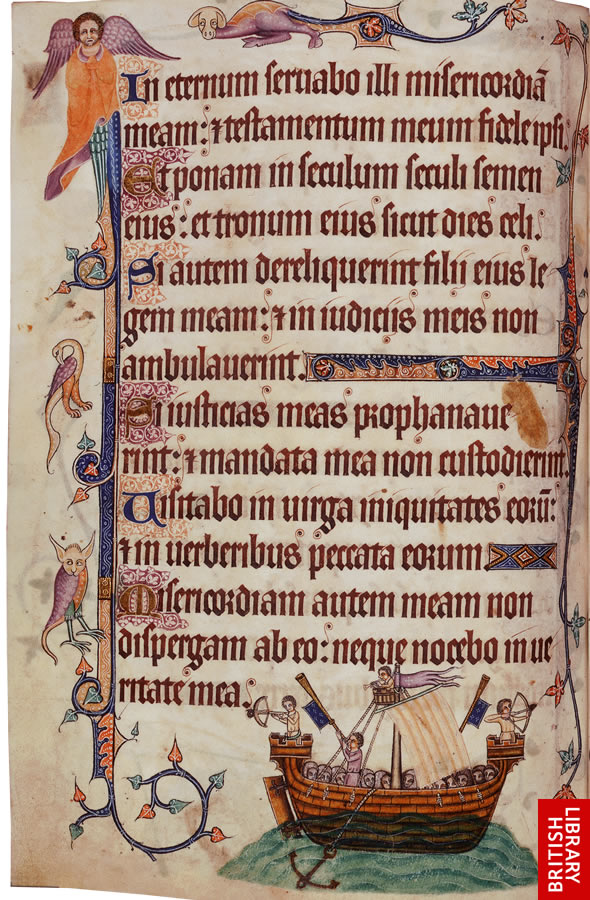 In eternum seruabo illi misericordiā
meam: ⁊ testamentum meum fidele ipsi.
Et ponam in seculum seculi semen
eius: et tronum eius sicut dies celi.
Si autem dereliquerint filij eius le
gem meam: ⁊ in iudicijs meis non
ambulauerint.
Si iusticias meas prophanaue
rint: ⁊ mandata mea non custodierint.
Uisitabo in uirga iniquitates eorū:
⁊ in uerberibus peccata eorum.
Misericordiam autem meam non
dispergam ab eo: neque nocebo in ue
ritate mea.
BRITISH
LIBRARY